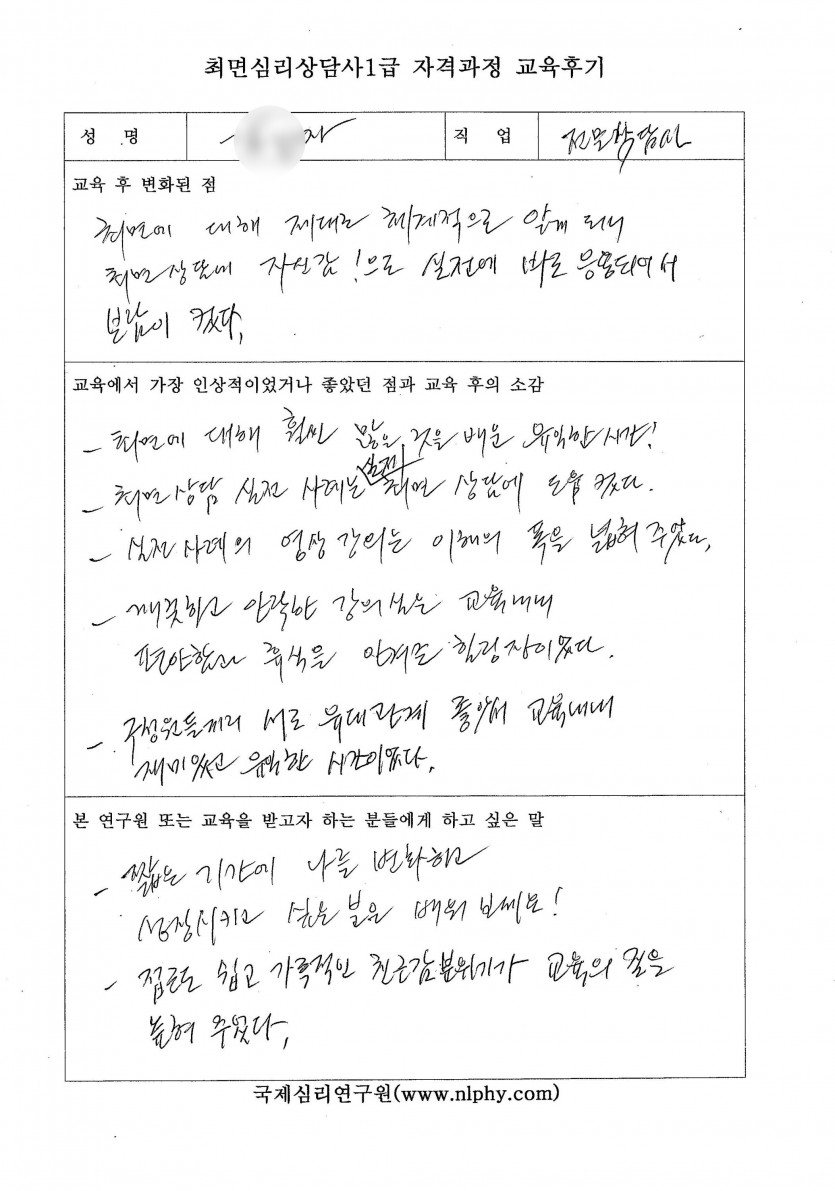 최면심리상담사1급 자격과정 교육후기
성 명 자 직 업 전문상담사
교육 후 변화된 점
최면에 대해 제대로 체계적으로 알게 되니
최면상담에 자신감!으로 실전에 바로 응용되어서
보람이 컸다.
교육에서 가장 인상적이었거나 좋았던 점과 교육 후의 소감
- 최면에 대해 훨씬 많은 것을 배운 유익한 시간!
- 최면상담 실전 사례는 실전 최면 상담에 도움 컸다.
- 실전사례의 영상강의는 이해의 폭을 넓혀 주었다.
- 깨끗하고 안락한 강의실은 교육내내
편안함과 휴식을 안겨준 힐링장이었다.
- 구성원들끼리 서로 유대관계 좋아서 교육내내
재미있고 유익한 시간이었다.
본 연구원 또는 교육을 받고자 하는 분들에게 하고 싶은 말
- 짧은 기간에 나를 변화하고
성장시키고 싶은 분은 배워 보세요!
- 접근도 쉽고 가족적인 친근감 분위기가 교육의 질을
높혀 주었다.
국제심리연구원(www.nlphy.com)